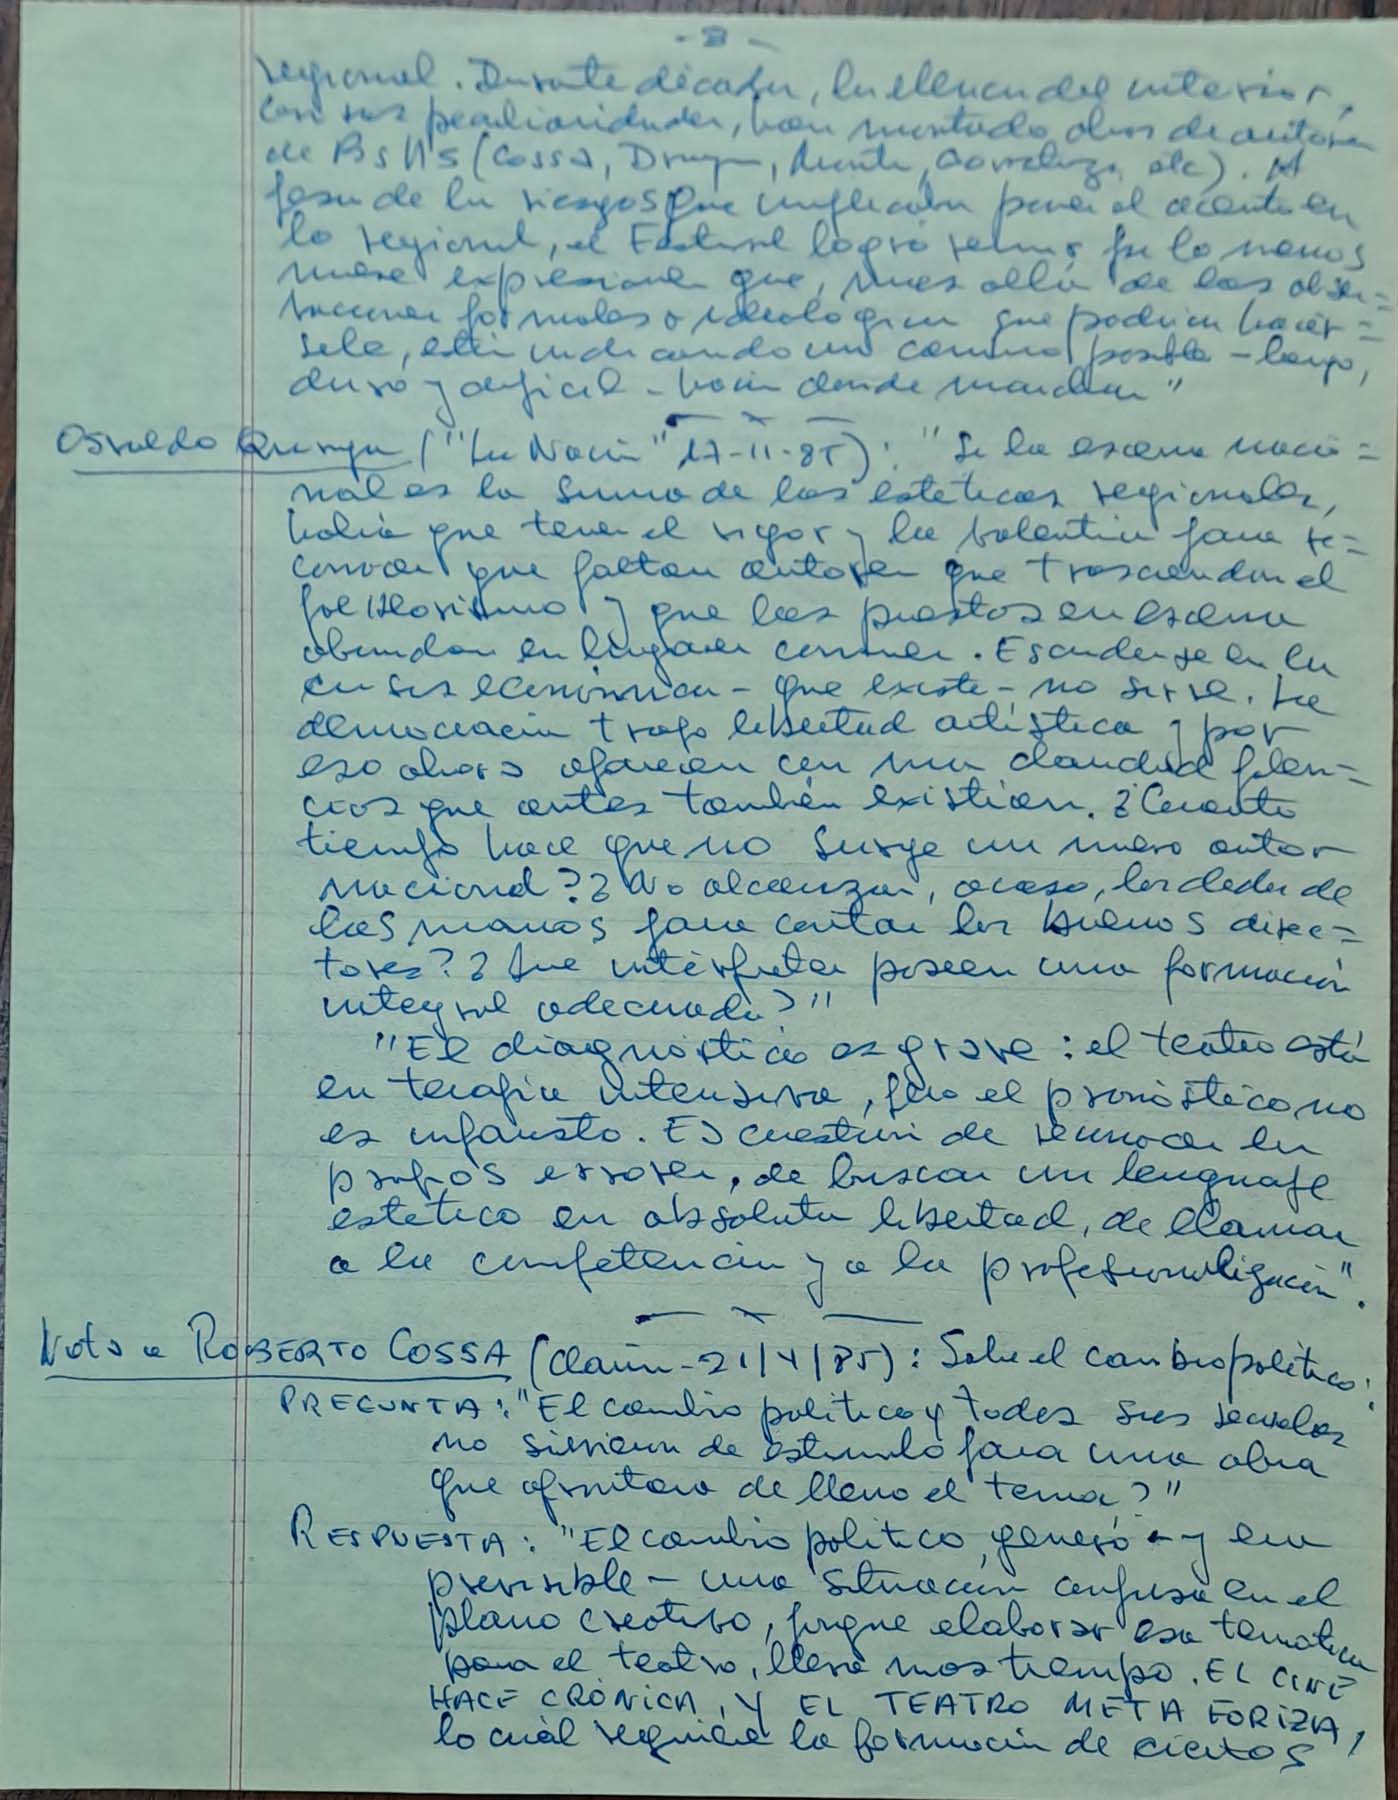 - 3 -
regional. Durante décadas, los elencos del interior,
con sus peculiaridades, han montado obras de autores
de Bs As (Cossa, Dragun, Monti, Gorostiza, etc). A
pesar de los riesgos que implicaba poner el acento en
lo regional, el Festival logró reunir por lo menos
nueve expresiones que, mas allá de las obser=
vaciones formales o ideologicas que podrian hacér=
sele, están indicando un camino posible - largo,
duro y dificil - hacia donde marchar"
Osvaldo Quiroga ("La Nación" 17-11-85): "Si la escena nacio=
nal es la suma de las esteticas regionales,
habrá que tener el rigor y la valentia para re=
conocer que faltan autores que trasciendan el
folklorismo y que las puestas en escena
abundan en lugares comunes. Escudarse en la
crisis económica - que existe - no sirve. La
democracia trajo libertud artística y por
eso ahora aparecen con mas claridad
que antes también existian. ¿Cuanto
tiempo hace que no surge un nuevo autor
nacional? ¿No alcanzan, acaso, los dedos de
las manos para contar los buenos direc=
tores? ¿Que intérpretes poseen una formación
integral adecuada?"
"El diagnóstico es grave: el teatro está
en terapia intensiva, pero el pronóstico no
es infausto. Es cuestión de reconocer los
propios errores, de buscar un lenguaje
estetico en absoluta libertad, de llamar
a la competencia y a la profesionalización".
Nota a ROBERTO COSSA (Clarin - 21/4/85): Sobre el cambio politico:
PREGUNTA: "El cambio politico y todas sus secuelas
no sirvieron de estimulo para una obra
que afrontara de lleno el tema?"
RESPUESTA: "El cambio politico, generó - y era
previsible - una situación confusa en el
plano creativo, porque elaborar esa temática
para el teatro, lleva mas tiempo. EL CINE
HACE CRÓNICA, Y EL TEATRO METAFORIZA,
lo cuál requiere la formación de ciertos